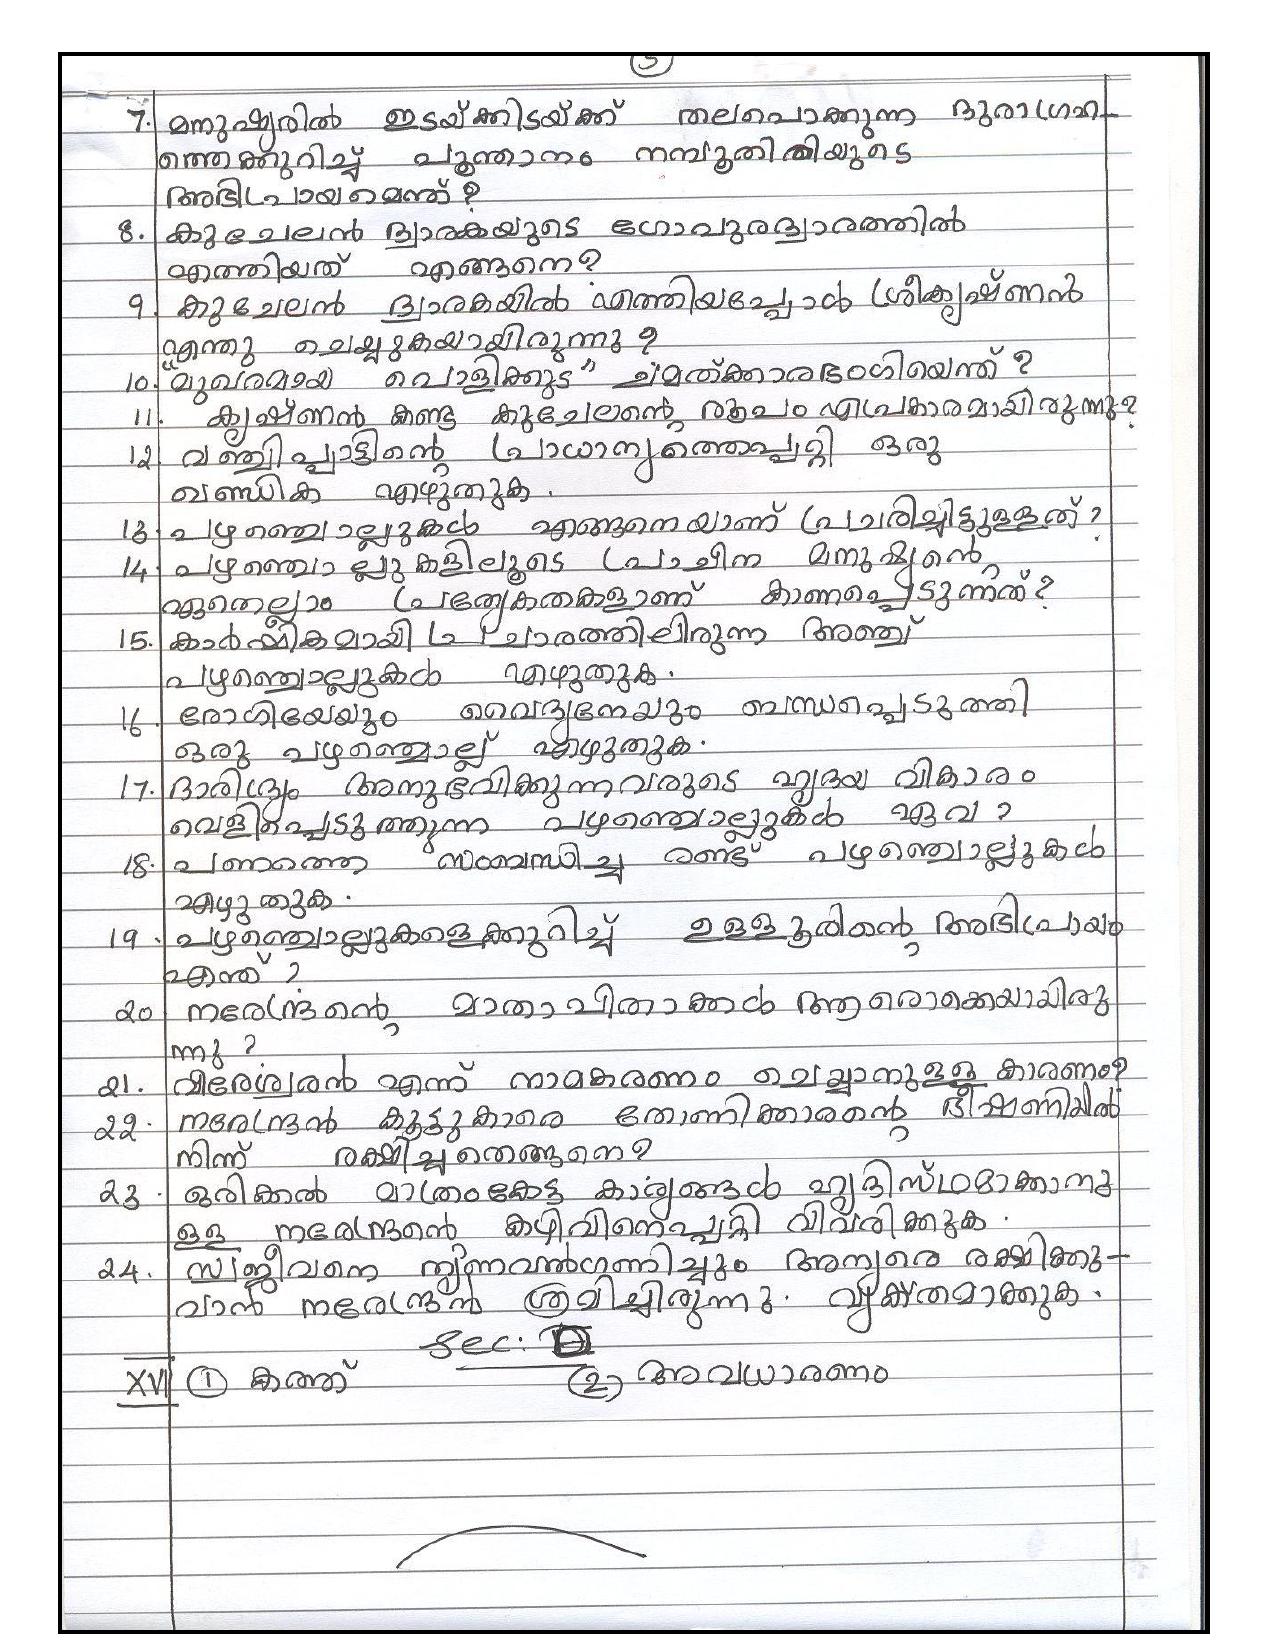 3
7. മനുഷ്യരിൽ ഇടയ്ക്കിടയ്ക്ക് തലപൊക്കുന്ന ദുരാഗ്രഹ-
ത്തെക്കുറിച്ച് പൂന്താനം നമ്പൂതിരിയുടെ
അഭിപ്രായമെന്ത്?
8. കുചേലൻ ദ്വാരകയുടെ ഗോപുരദ്വാരത്തിൽ
എത്തിയത് എങ്ങനെ?
9 കുചേലൻ ദ്വാരകയിൽ എത്തിയപ്പോൾ ശ്രീകൃഷ്ണൻ
എന്തു ചെയ്യുകയായിരുന്നു?
10. "മുഖരമായ പൊളിക്കുട" ചമത്ക്കാരഭംഗിയെന്ത്?
11. കൃഷ്ണൻ കണ്ട കുചേലന്റെ രൂപം എപ്രകാരമായിരുന്നു?
12 വഞ്ചിപ്പാട്ടിന്റെ പ്രാധാന്യത്തെപ്പറ്റി ഒരു
ഖണ്ഡിക എഴുതുക.
13 പഴഞ്ചൊല്ലുകൾ എങ്ങനെയാണ് പ്രചരിച്ചിട്ടുള്ളത്?
14 പഴഞ്ചൊല്ലുകളിലൂടെ പ്രാചീന മനുഷ്യന്റെ
ഏതെല്ലാം പ്രത്യേകതകളാണ് കാണപ്പെടുന്നത്?
15. കാർഷികമായി പ്രചാരത്തിലിരുന്ന അഞ്ച്
പഴഞ്ചൊല്ലുകൾ എഴുതുക.
16. രോഗിയേയും വൈദ്യനേയും ബന്ധപ്പെടുത്തി
ഒരു പഴഞ്ചൊല്ല് എഴുതുക.
17. ദാരിദ്ര്യം അനുഭവിക്കുന്നവരുടെ ഹൃദയ വികാരം
വെളിപ്പെടുത്തുന്ന പഴഞ്ചൊല്ലുകൾ ഏവ?
18. പണത്തെ സംബന്ധിച്ച രണ്ട് പഴഞ്ചൊല്ലുകൾ
എഴുതുക.
19. പഴഞ്ചൊല്ലുകളെക്കുറിച്ച് ഉള്ളൂരിന്റെ അഭിപ്രായം
എന്ത്?
20 നരേന്ദ്രന്റെ മാതാപിതാക്കൾ ആരൊക്കെയായിരു
ന്നു?
21. വീരേശ്വരൻ എന്ന് നാമകരണം ചെയ്യാനുള്ള കാരണം?
22. നരേന്ദ്രൻ കൂട്ടുകാരെ തോണിക്കാരന്റെ ഭീഷണിയിൽ
നിന്ന് രക്ഷിച്ചതെങ്ങനെ?
23. ഒരിക്കൽ മാത്രംകേട്ട കാര്യങ്ങൾ ഹൃദിസ്ഥമാക്കാനു
ള്ള നരേന്ദ്രന്റെ കഴിവിനെപ്പറ്റി വിവരിക്കുക.
24. സ്വജീവനെ തൃണവൽഗണിച്ചും അന്യരെ രക്ഷിക്കു-
വാൻ നരേന്ദ്രൻ ശ്രമിച്ചിരുന്നു. വ്യക്തമാക്കുക.
Sec: D
XVI (1) കത്ത് (2) അവധാരണം